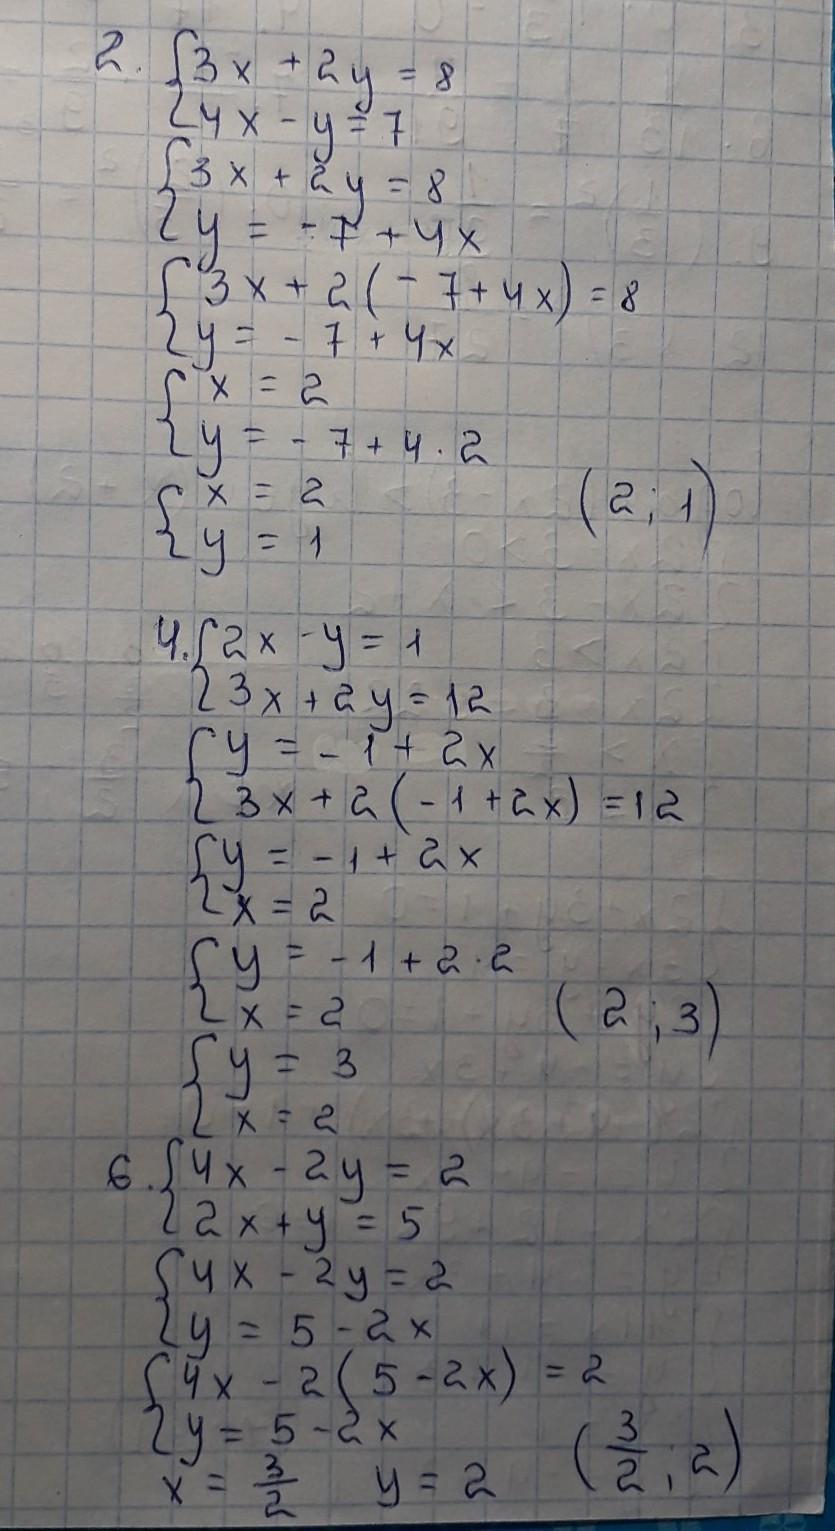 2. {3x + 2y = 8
{4x - y = 7
{3x + 2y = 8
{y = -7 + 4x
{3x + 2(-7 + 4x) = 8
{y = -7 + 4x
{x = 2
{y = -7 + 4 · 2
{x = 2 (2 ; 1)
{y = 1
4. {2x - y = 1
{3x + 2y = 12
{y = -1 + 2x
{3x + 2(-1 + 2x) = 12
{y = -1 + 2x
{x = 2
{y = -1 + 2 · 2
{x = 2 (2 ; 3)
{y = 3
{x = 2
6. {4x - 2y = 2
{2x + y = 5
{4x - 2y = 2
{y = 5 - 2x
{4x - 2(5 - 2x) = 2
{y = 5 - 2x
x = 3/2 y = 2 (3/2 ; 2)